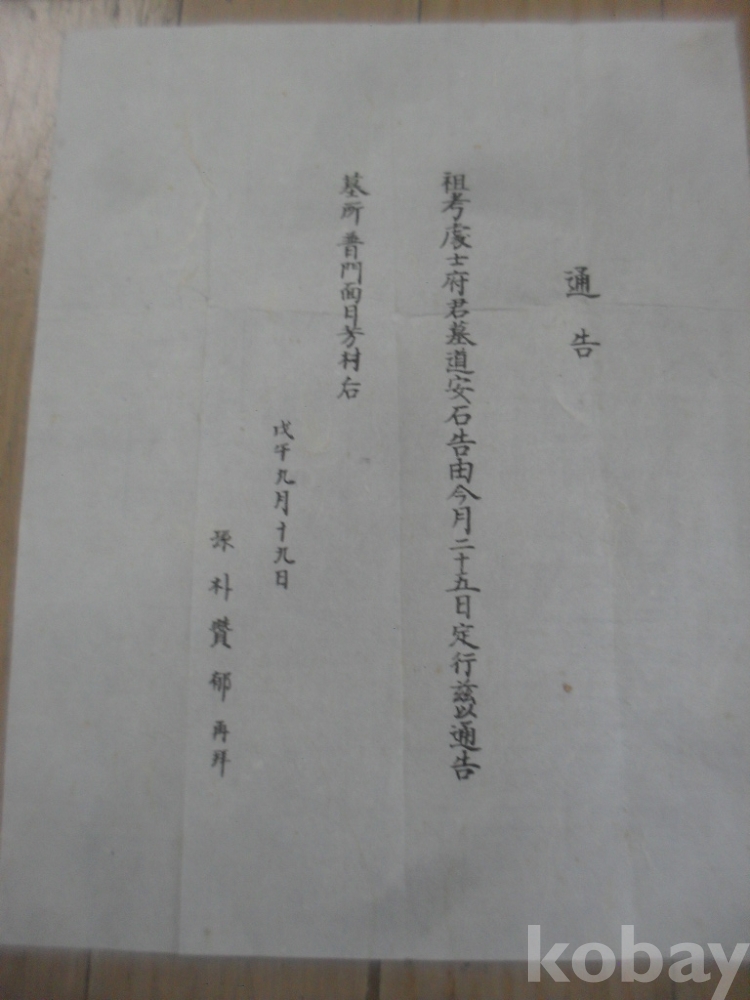 通告
祖考處士府君墓道安石告由今月二十五日定行茲以通告
墓所普門面日芳村后
戊午九月十九日
孫朴贊郁再拜
kobay